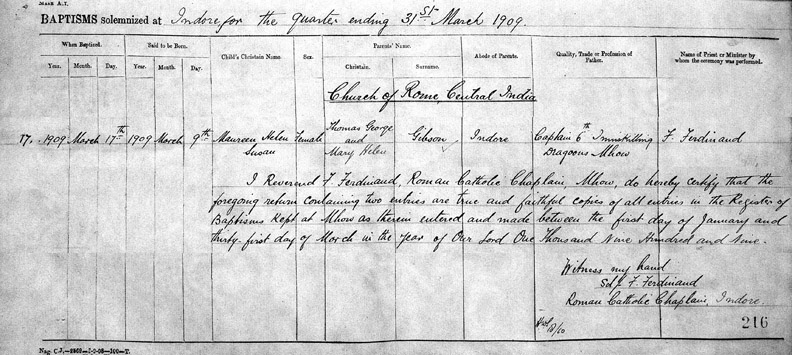 BAPTISMS solemnized at Indore for the quarter ending 31st March 1909.
When Baptized. Said to be Born. Child's Christain Name. Sex. Parents' Name. Abode of Parents. Quality, Trade or Profession of Father. Name of Priest or Minister by whom the ceremony was performed.
Year. Month. Day. Year. Month. Day. Christain. Surname.
Church of Rome, Central India
17. 1909 March 17th 1909 March 9th Maureen Helen Female Thomas George Gibson Indore Captain 6th Inniskilling F. Ferdinand
Susan and Dragoons Mhow
Mary Helen
I Reverend F Ferdinand, Roman Catholic Chaplain, Mhow, do hereby certify that the
foregoing return containing two entries are true and faithful copies of all entries in the Register of
Baptisms kept at Mhow as therein entered and made between the first day of January and
thirty-first day of March in the year of Our Lord One Thousand Nine Hundred and Nine.
Witness my hand
Sd/ F. Ferdinand
Roman Catholic Chaplain, Indore.
216